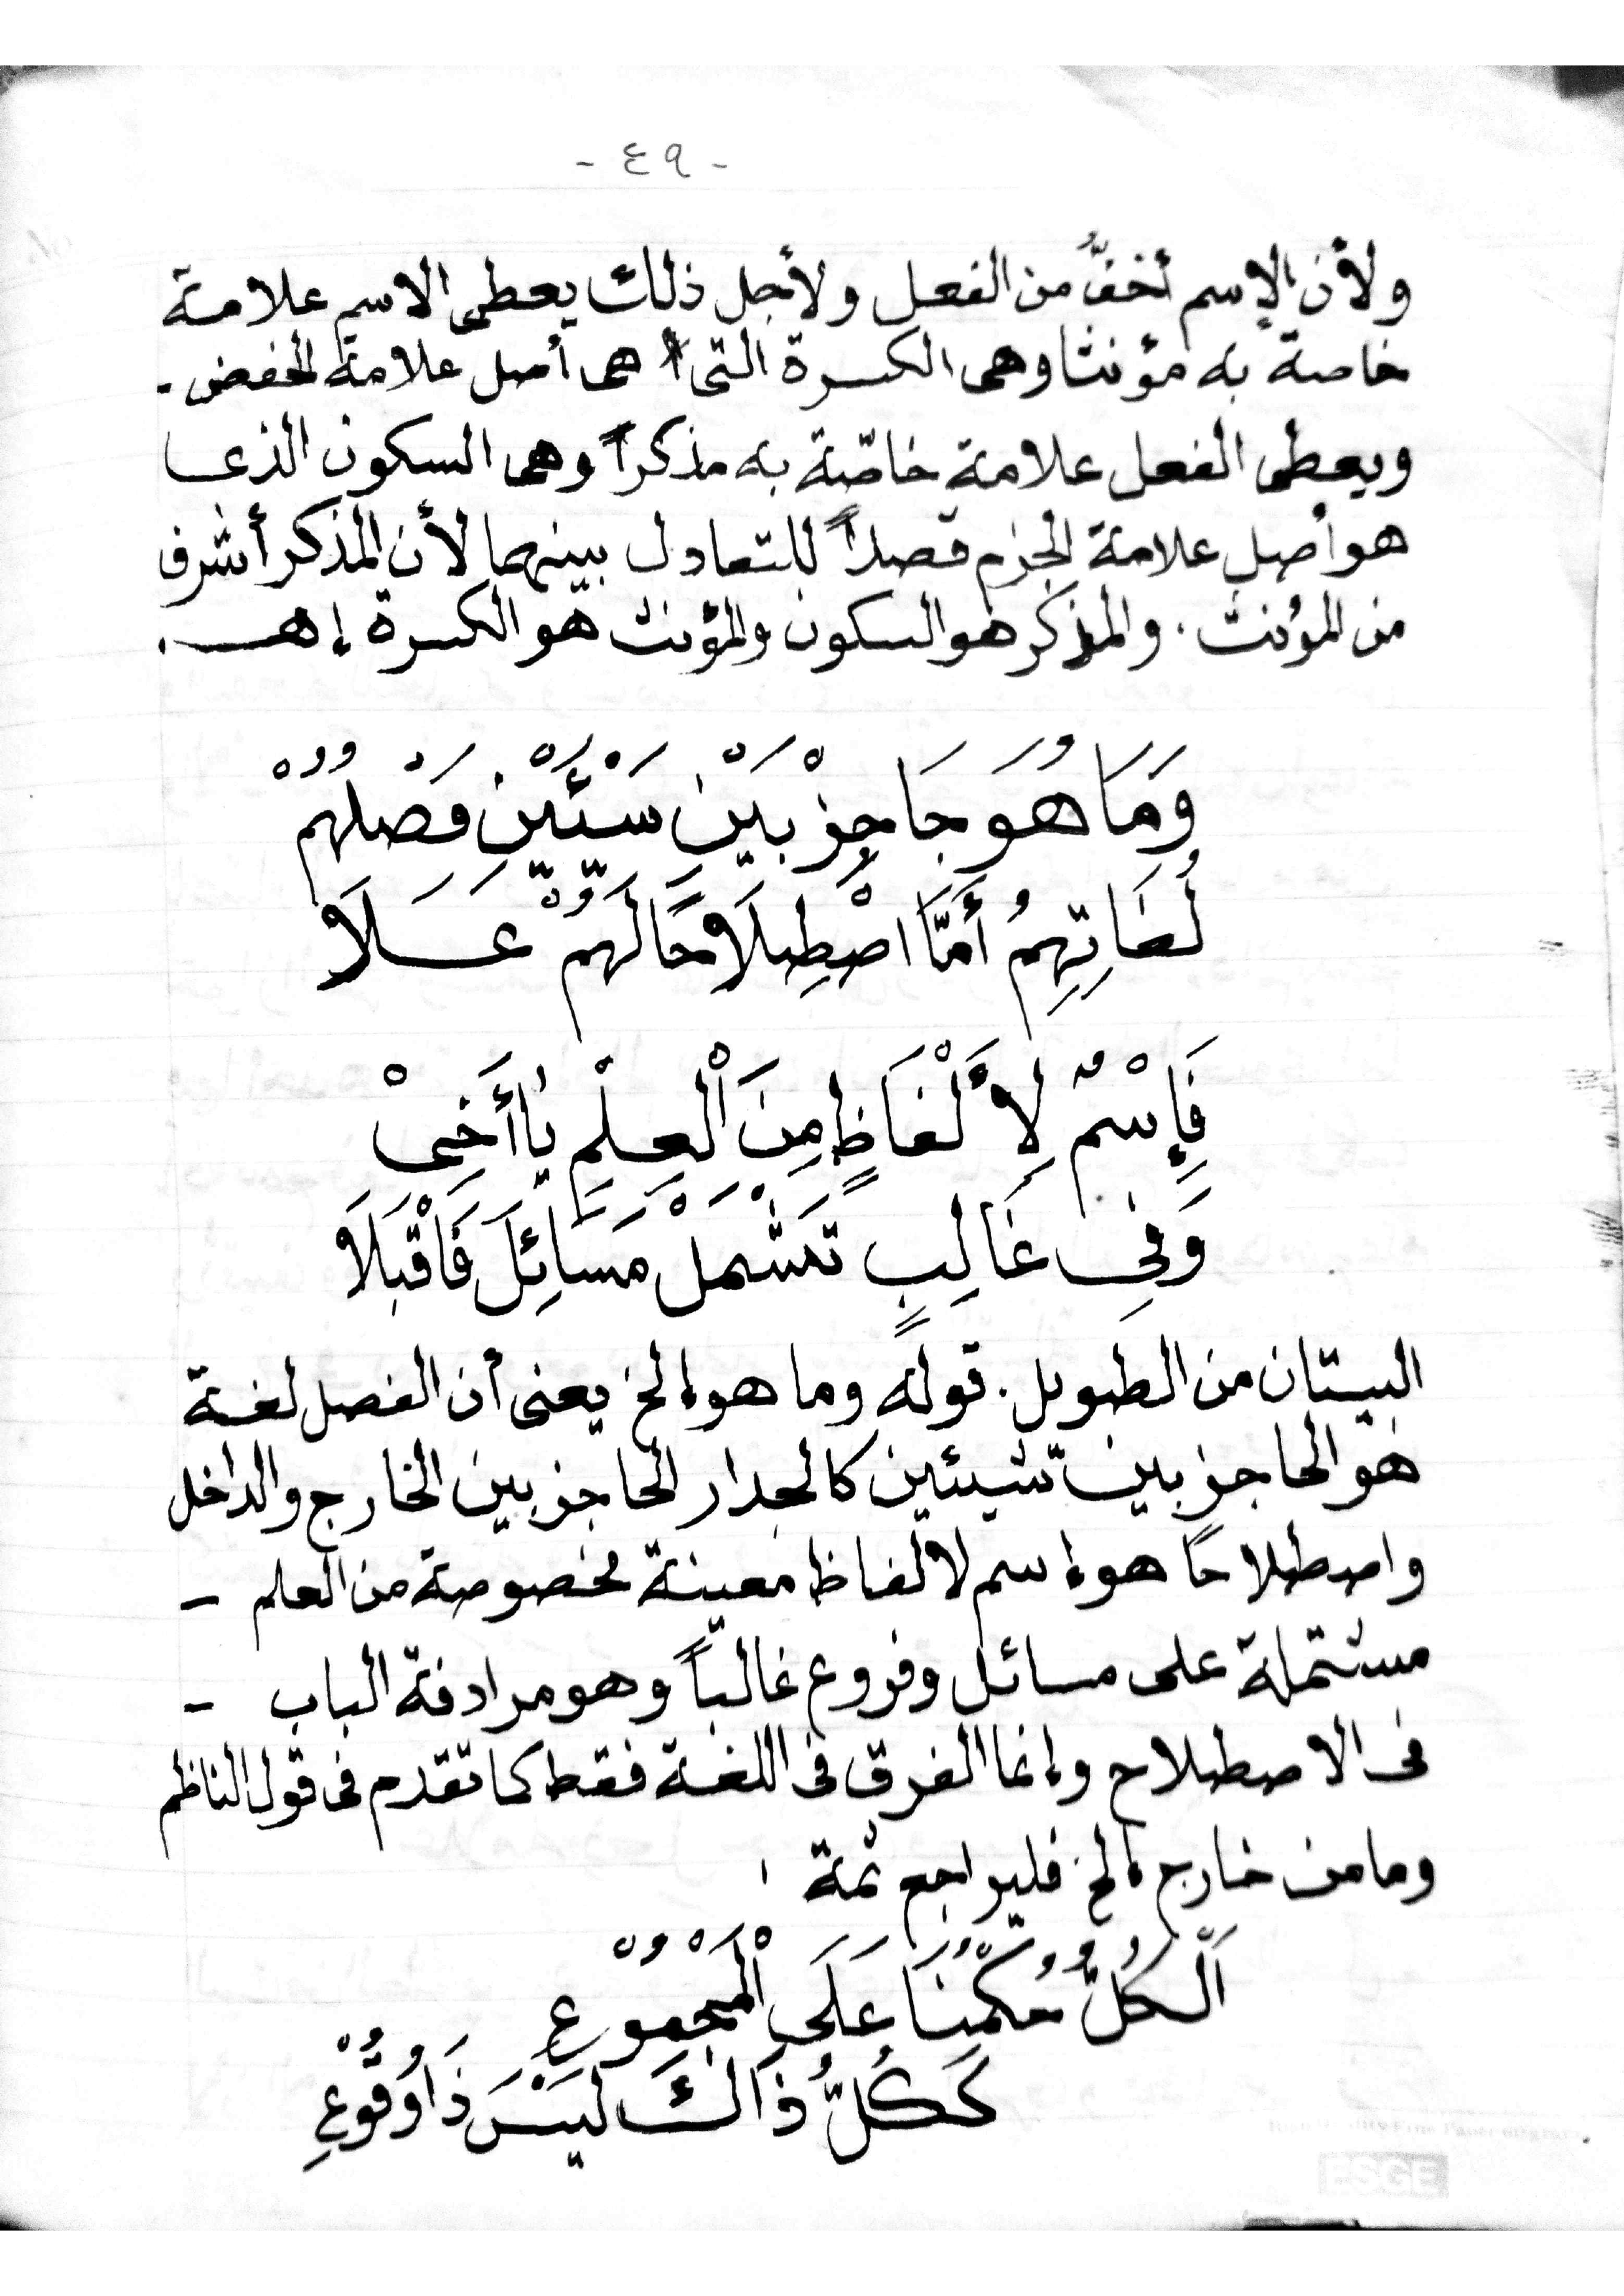 - ٤٩ -
ولأن الإسم أخفُّ من الفعل ولأجل ذلك يعطى الاسم علامة
خاصة به مؤنثا وهى الكسرة التى هى أصل علامة الخفض -
ويعطى الفعل علامة خاصّة به مذكراً وهى السكون الذى
هو أصل علامة الجزم قصداً للتعادل بينهما لأن المذكر أشرف
من المؤنث. والمذكر هو السكون والمؤنث هو الكسرة إهـ.
وَمَا هُوَ حَاجِزْ بَيْنَ شَيْئَيْنِ فَصْلُهُمْ
لُغَاتِهِمُ أَمَّا اصْطِلَاحًا لَهُمْ عَلَا
فَإِسْمٌ لِأَلْفَاظٍ مِنَ الْعِلْمِ يَا أَخِىْ
وَفِى غَالِبٍ تَشْمَلْ مَسَائِلَ فَاقْبَلَا
البيتان من الطويل. قوله وما هو إلخ يعنى أن الفصل لغة
هو الحاجز بين شيئين كالجدار الحاجز بين الخارج والداخل
واصطلاحًا هو إسم لالفاظ معينة مخصوصة من العلم -
مشتملة على مسائل وفروع غالباً وهو مرادفة الباب -
فى الاصطلاح وإنما الفرق فى اللغة فقط كما تقدم فى قول الناظم
وما من خارج إلخ فليراجع ثمة
اَلْكُلُّ حُكْمُنَا عَلَى الْمَجْمُوْعِ
كَكُلُّ ذَاكَ لَيْسَ ذَا وُقُوْعِ
ESGE